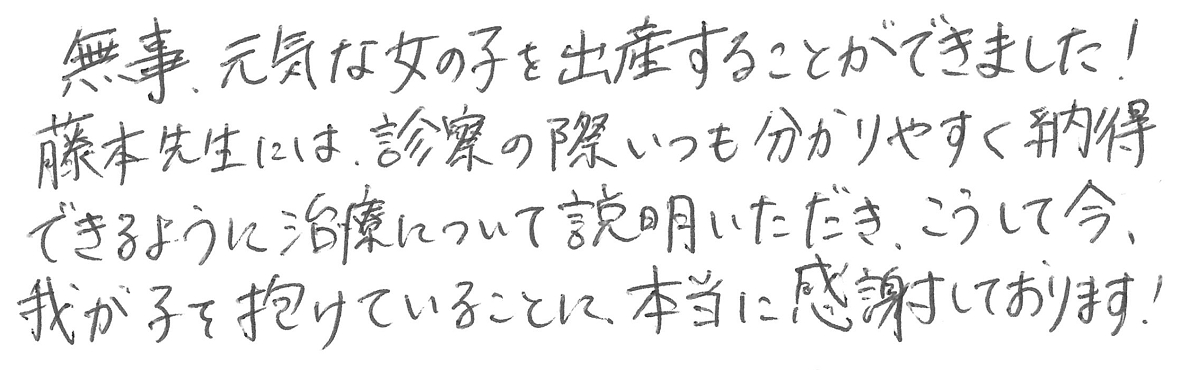 無事、元気な女の子を出産することができました!
藤本先生には、診察の際いつも分かりやすく納得
できるように治療について説明いただき、こうして今、
我が子を抱けていることに、本当に感謝しております!